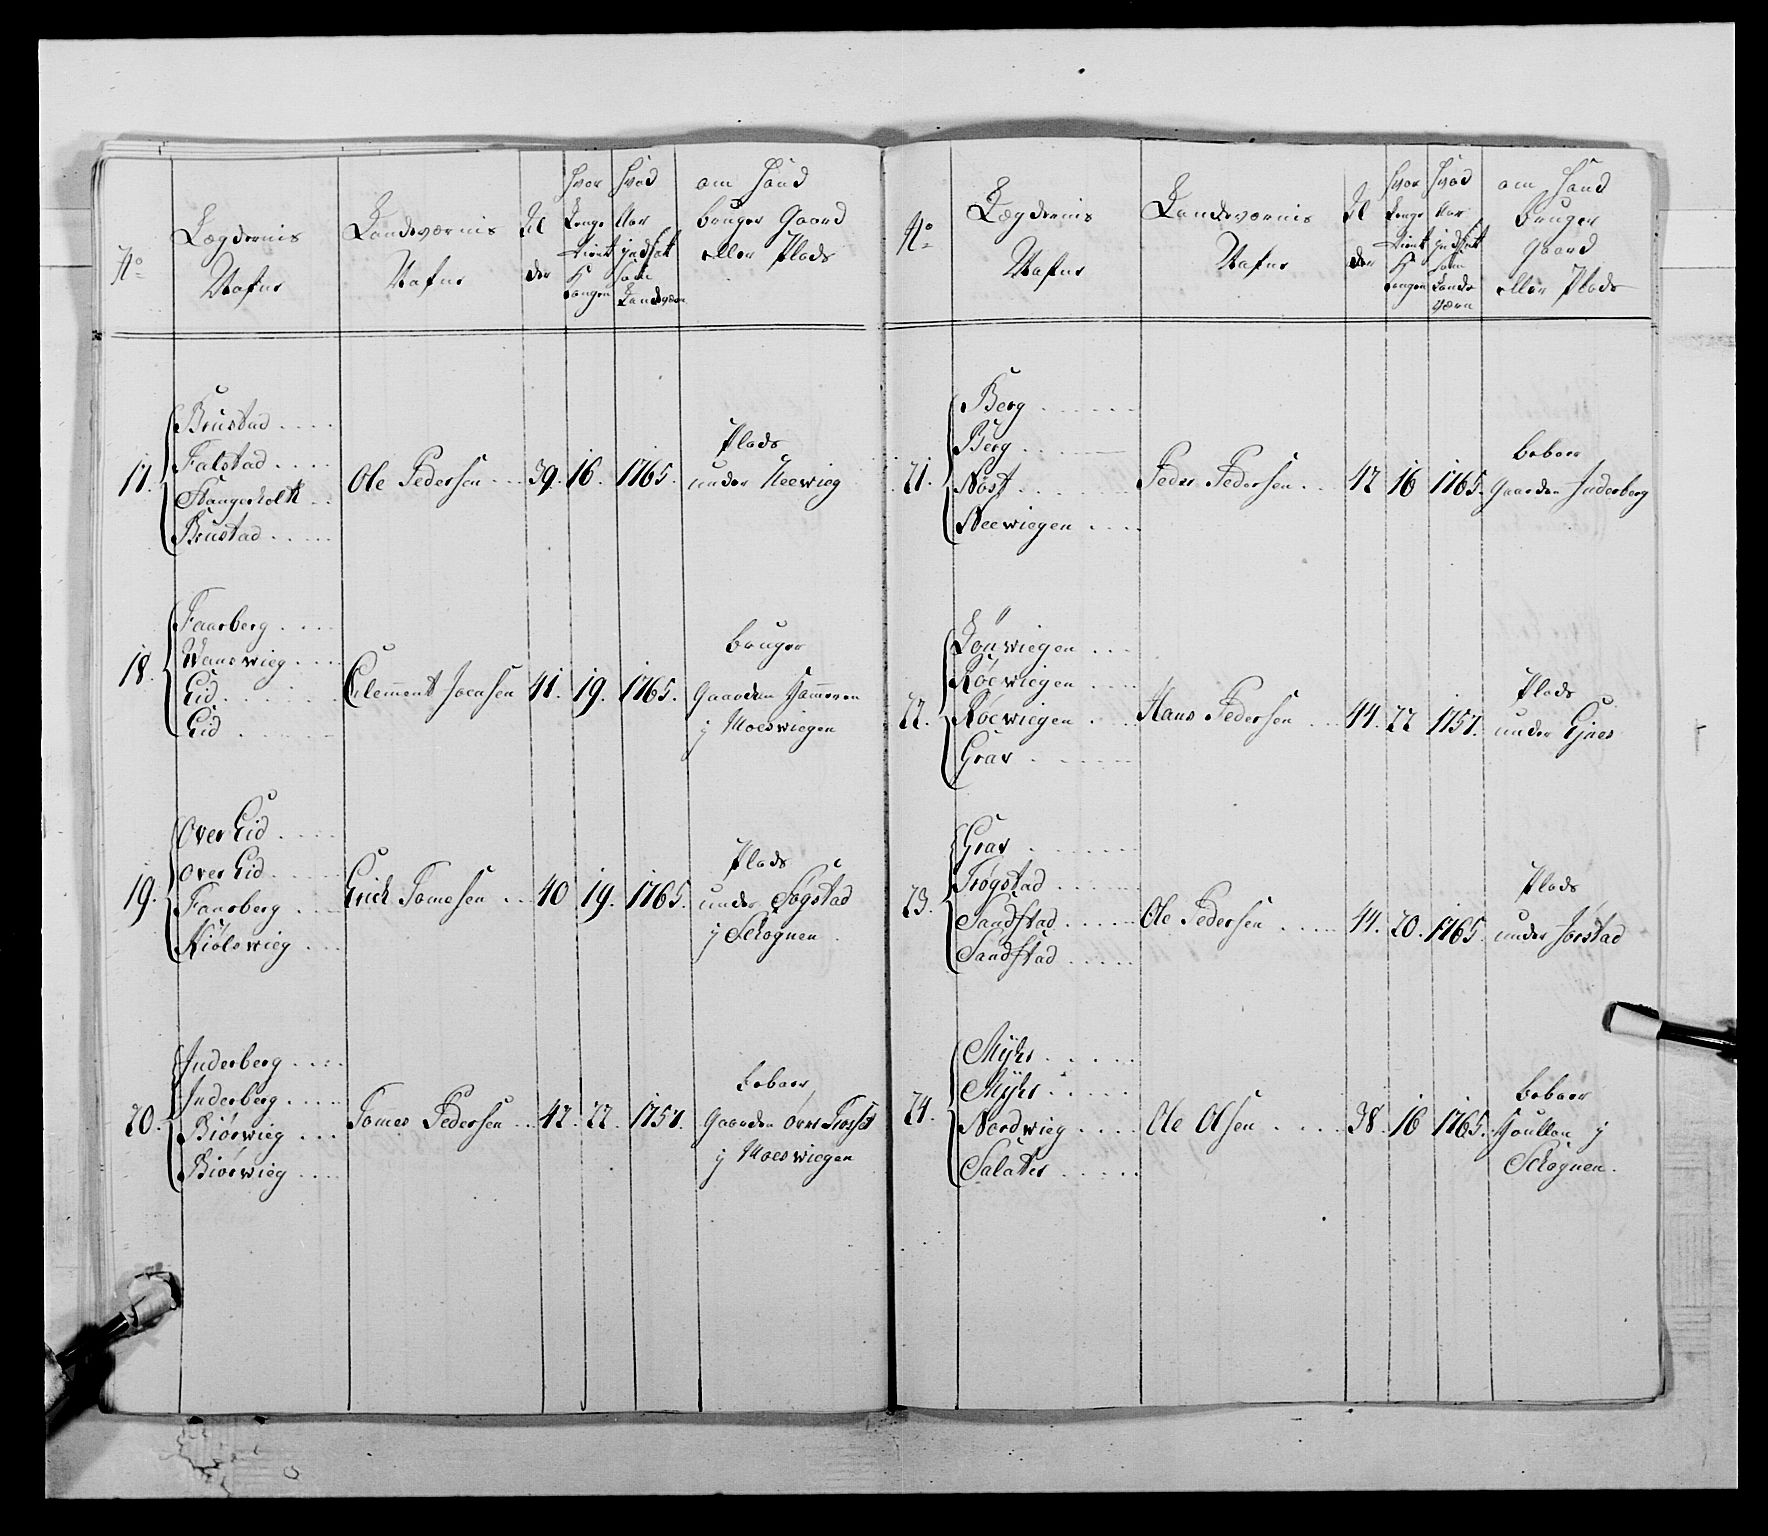 No
Lægdernis
Nafne
Landeværnis
Nafne
Al
der
hvor
Lenge
tient
K
kongen
hvad
Aar
indsat
som
Landeværn
om hand
bruger Gaard
eller Plads
17.
Brustad
Falstad
Stangerholt
Brustad
Ole Pedersen
39.
16.
1765.
Plads
under Neewieg
18.
Faarberg
Wanswieg
Eid
Eid
Clement Jocasen
41.
19.
1765.
bruger
Gaarden Hammeren
j Moeswiegen
19.
Over Eid
over Eid
Faarberg
Kiølswieg
Erich Tomesen
40
19.
1765.
Plads
under Fogstad
j Schognen
20.
Inderberg
Inderberg
Biørwieg
Biørwieg
Tomes Pedersen
42.
22.
1757.
beboer
Gaarden over
j Moeswiegen
No
Lægdernis
Nafne
Landeværnis
Nafne
Al
der
hvor
Lenge
tient
K
kongen
hvad
Aar
indsat
som
Lande
værn
om Hand
bruger
Gaard
eller Plads
21.
Berg
Berg
Nøst
Neewiegen
Peder Pedersen
42
16
1765.
beboer
Gaarden Inderberg
22.
Lønwiegen
Røewiegen
Røewiegen
Grav
Hans Pedersen
44.
22
1757.
Plads
under
23.
Grav
Trøgstad
Sandstad
Sandstad
Ole Pedersen
44.
20.
1765.
Plads
under Jørstad
24.
Myhr
Myhr
Nordwieg
Salater
Ole Olsen
38.
16
1765.
beboer
j
Schognen.